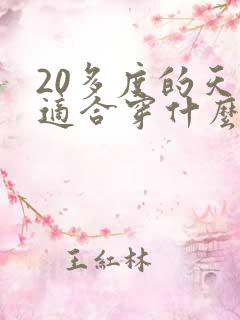 20多度的天
適合穿什麼
王紅林